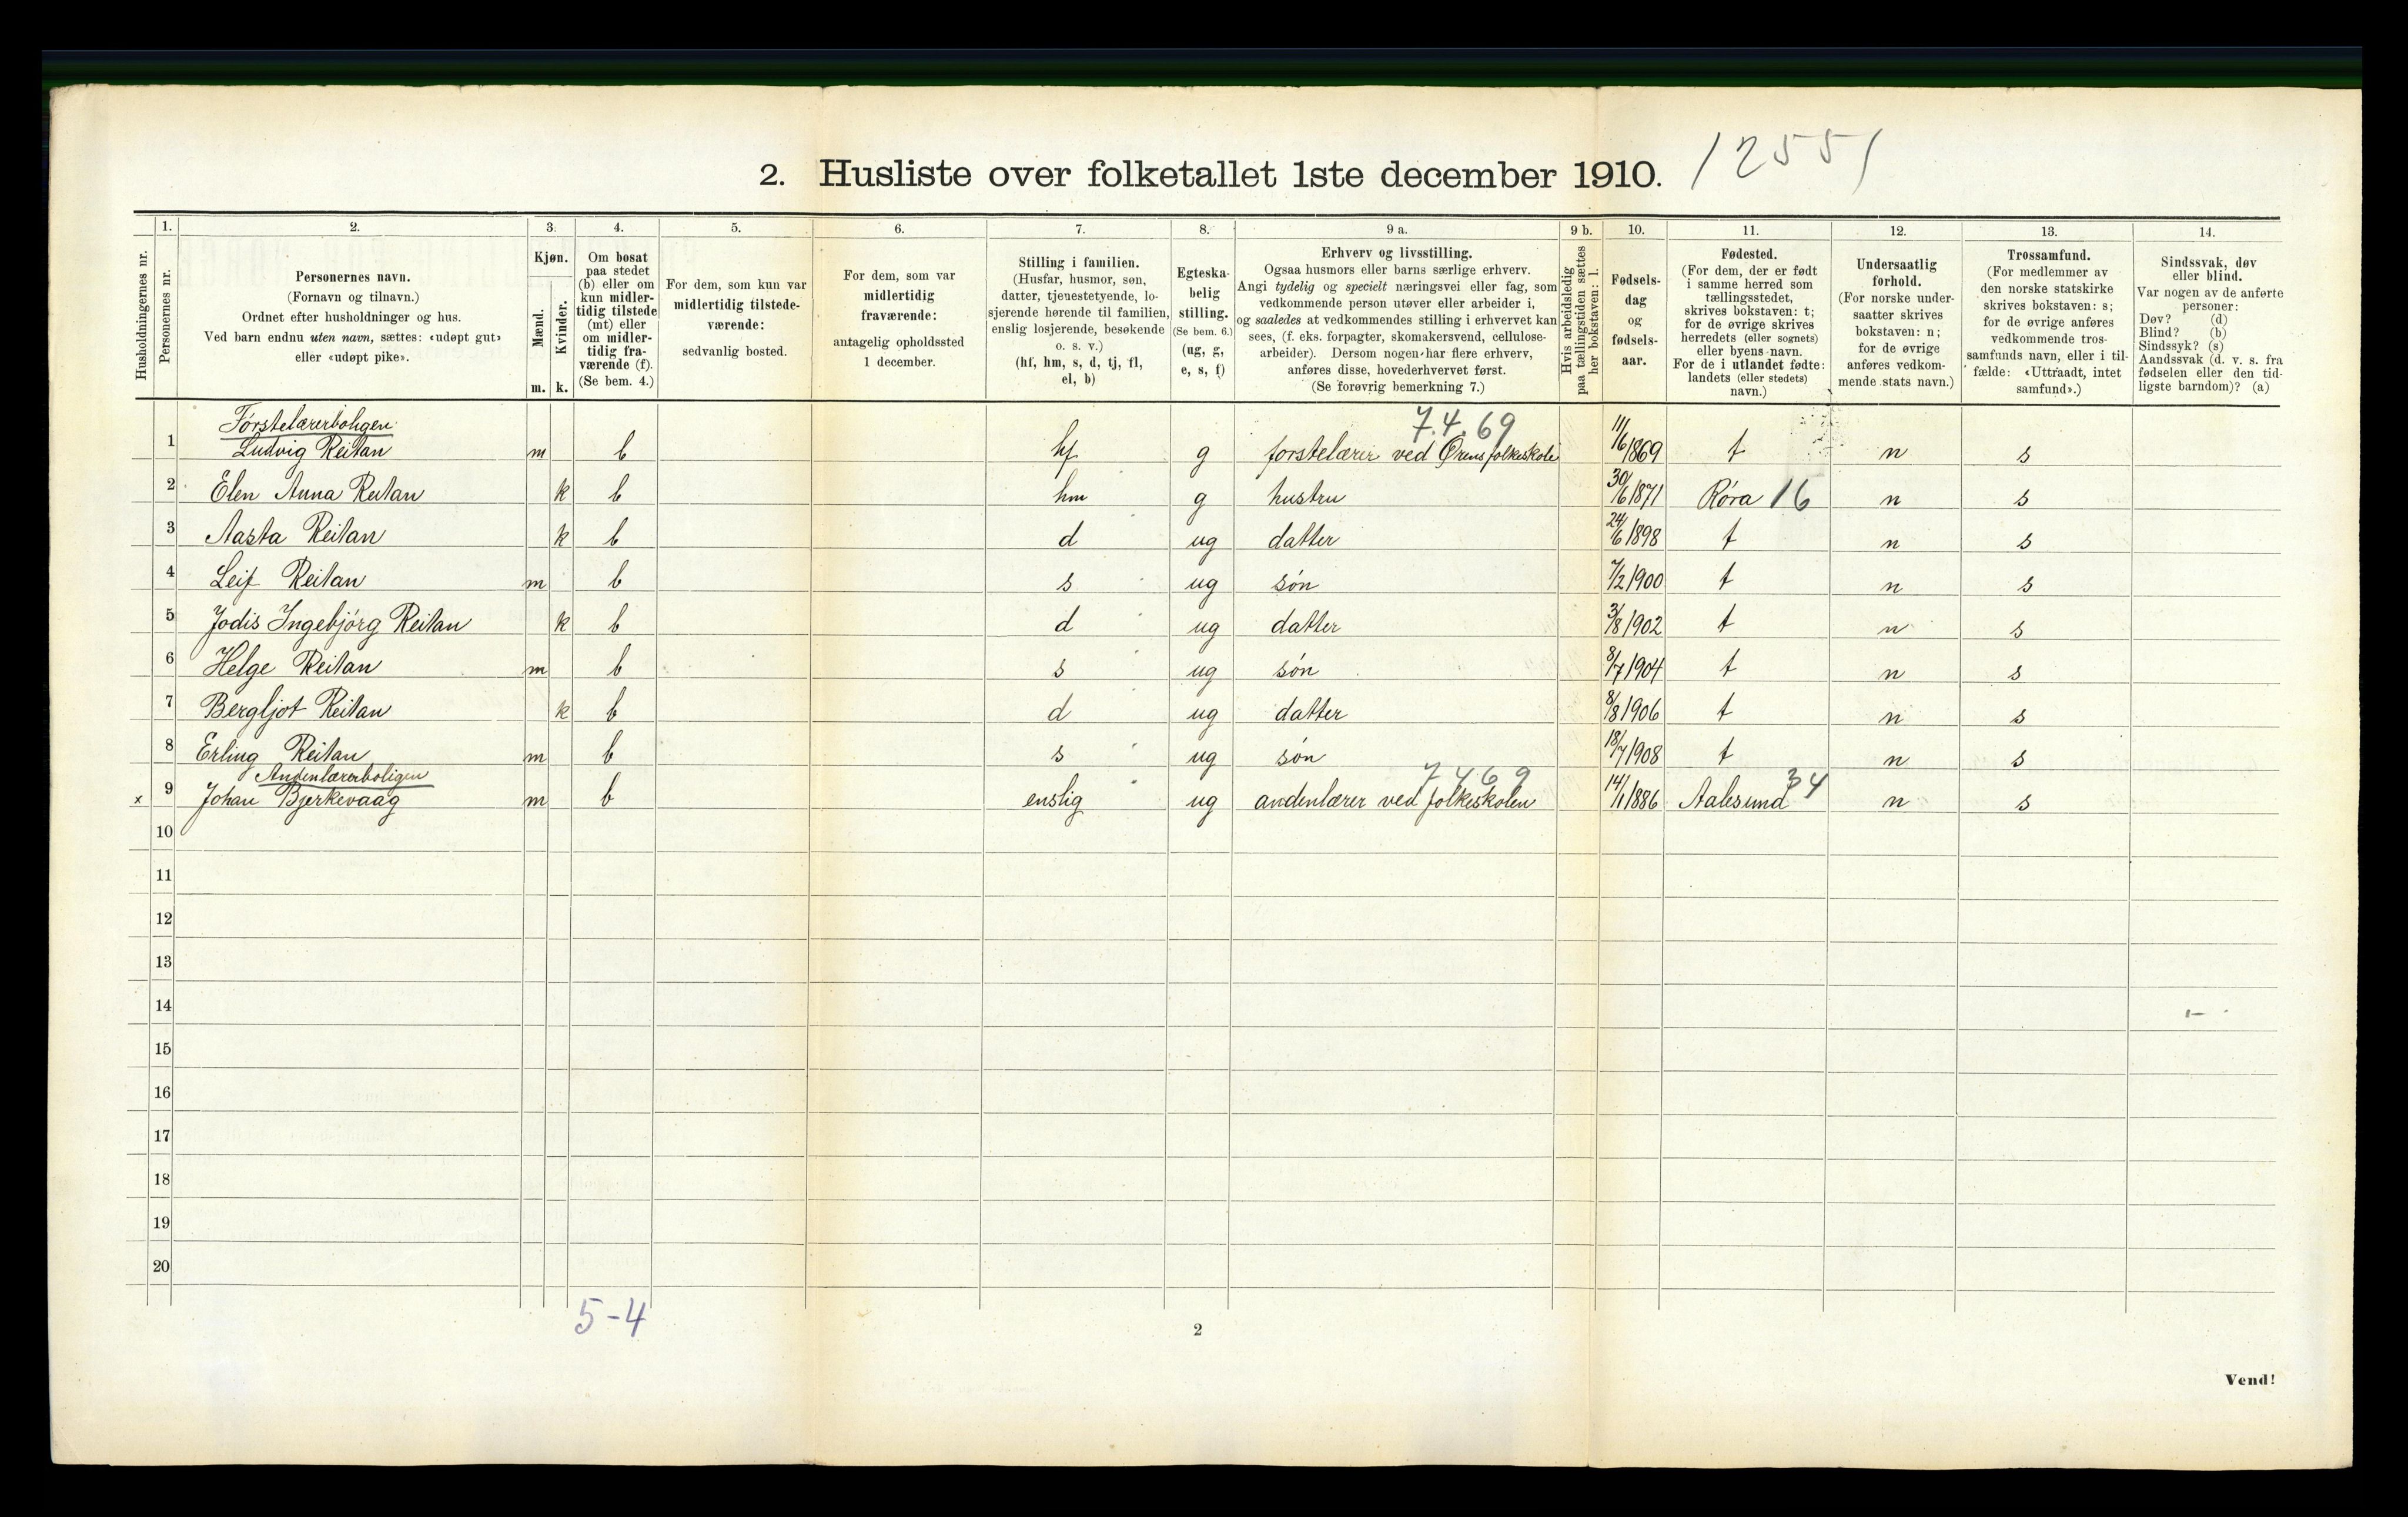 2. Husliste over folketallet 1ste december 1910. 12551
1. 2. 3. 4. 5. 6. 7. 8. 9 a. 9 b. 10. 11. 12. 13. 14.
Husholdningernes nr.
Personernes nr.
Personernes navn.
(Fornavn og tilnavn.)
Ordnet efter husholdninger og hus.
Ved barn endnu uten navn, sættes: «udøpt gut»
eller «udøpt pike».
Kjøn.
Mænd.
Kvinder.
m. k.
Om bosat
paa stedet
(b) eller om
kun midler-
tidig tilstede
(mt) eller
om midler-
tidig fra-
værende (f).
(Se bem. 4.)
For dem, som kun var
midlertidig tilstede-
værende:
sedvanlig bosted.
For dem, som var
midlertidig
fraværende:
antagelig opholdssted
1 december.
Stilling i familien.
(Husfar, husmor, søn,
datter, tjenestetyende, lo-
sjerende hørende til familien,
enslig losjerende, besøkende
o. s. v.)
(hf, hm, s, d, tj, fl,
el, b)
Egteska-
belig
stilling.
(Se bem. 6.)
(ug, g,
e, s, f)
Erhverv og livsstilling.
Ogsaa husmors eller barns særlige erhverv.
Angi tydelig og specielt næringsvei eller fag, som
vedkommende person utøver eller arbeider i,
og saaledes at vedkommendes stilling i erhvervet kan
sees, (f. eks. forpagter, skomakersvend, cellulose-
arbeider). Dersom nogen har flere erhverv,
anføres disse, hovederhvervet først.
(Se forøvrig bemerkning 7.)
Hvis arbeidsledig
paa tællingstiden sættes
her bokstaven: l.
Fødsels-
dag
og
fødsels-
aar.
Fødested.
(For dem, der er født
i samme herred som
tællingsstedet,
skrives bokstaven: t;
for de øvrige skrives
herredets (eller sognets)
eller byens navn.
For de i utlandet fødte:
landets (eller stedets)
navn.)
Undersaatlig
forhold.
(For norske under-
saatter skrives
bokstaven: n;
for de øvrige
anføres vedkom-
mende stats navn.)
Trossamfund.
(For medlemmer av
den norske statskirke
skrives bokstaven: s;
for de øvrige anføres
vedkommende tros-
samfunds navn, eller i til-
fælde: «Uttraadt, intet
samfund».)
Sindssvak, døv
eller blind.
Var nogen av de anførte
personer:
Døv? (d)
Blind? (b)
Sindssyk? (s)
Aandssvak (d. v. s. fra
fødselen eller den tid-
ligste barndom)? (a)
Førstelærerboligen 7.4.69
1 Ludvig Reitan m b hf g førstelærer ved Ørens folkeskole 11/6 1869 t n s
2 Elen Anna Reitan k b hm g hustru 30/6 1871 Røra 16 n s
3 Aasta Reitan k b d ug datter 24/6 1898 t n s
4 Leif Reitan m b s ug søn 7/2 1900 t n s
5 Jodis Ingebjørg Reitan k b d ug datter 3/8 1902 t n s
6 Helge Reitan m b s ug søn 8/7 1904 t n s
7 Bergljot Reitan k b d ug datter 8/8 1906 t n s
8 Erling Reitan m b s ug søn 18/7 1908 t n s
Andenlærerboligen 7469 34
x 9 Johan Bjerkevaag m b enslig ug andenlærer ved folkeskolen 14/1 1886 Aalesund n s
10
11
12
13
14
15
16
17
18
19
20
5-4
2
Vend!